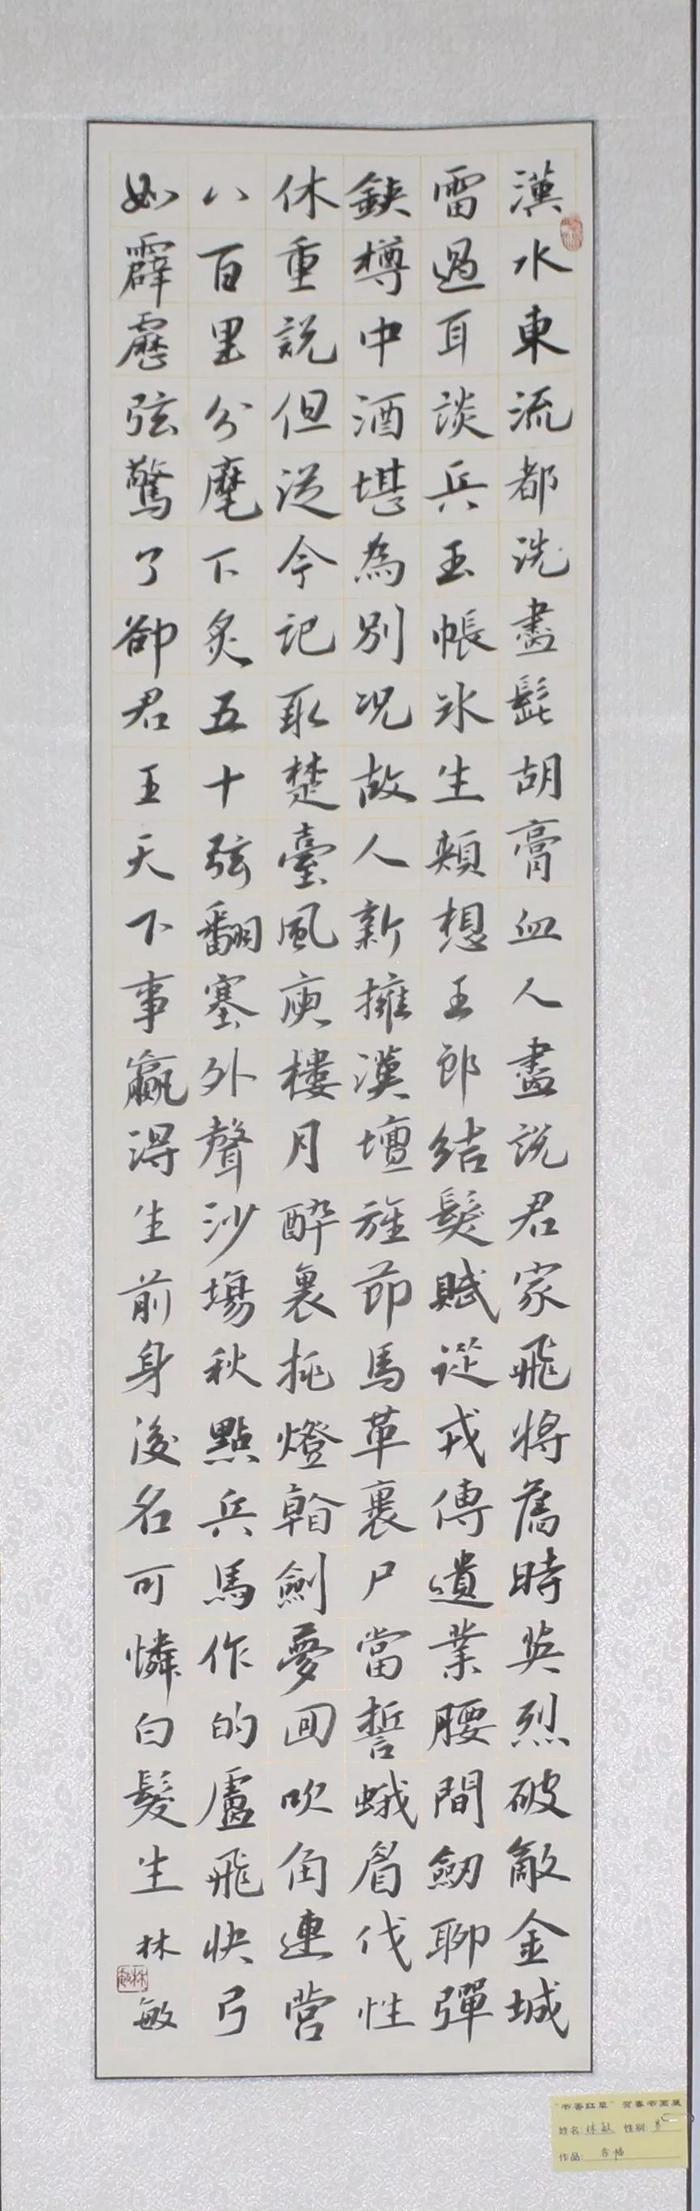 漢水東流都洗盡髭胡膏血人盡説君家飛將舊時英烈破敵金城
雷過耳談兵玉帳冰生頰想王郎結髮賦從戎傳遺業腰間劒聊彈
鋏樽中酒堪為別况故人新擁漢壇旌節馬革裹尸當誓蛾眉伐性
休重説但從今記取楚臺風庾樓月醉裏挑燈看劍夢回吹角連營
八百里分麾下炙五十弦翻塞外聲沙場秋點兵馬作的盧飛快弓
如霹靂弦驚了卻君王天下事贏得生前身後名可憐白髮生 林敏
林敏
"书香红草"迎春书画展
姓名: 林敏 性别: 男
作品: